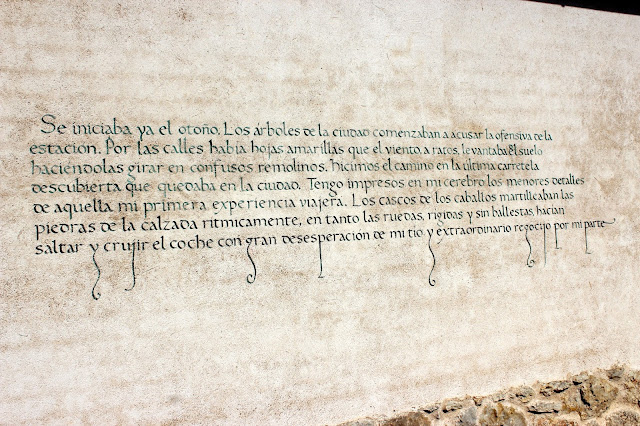 Se iniciaba ya el otoño. Los árboles de la ciudad comenzaban a acusar la ofensiva de la
estación. Por las calles había hojas amarillas que el viento, a ratos, levantaba del suelo
haciéndolas girar en confusos remolinos. Hicimos el camino en la última carretela
descubierta que quedaba en la ciudad. Tengo impresos en mi cerebro los menores detalles
de aquella mi primera experiencia viajera. Los cascos de los caballos martilleaban las
piedras de la calzada rítmicamente, en tanto las ruedas, rígidas y sin ballestas, hacían
saltar y crujir el coche con gran desesperación de mi tío y extraordinario regocijo por mi parte